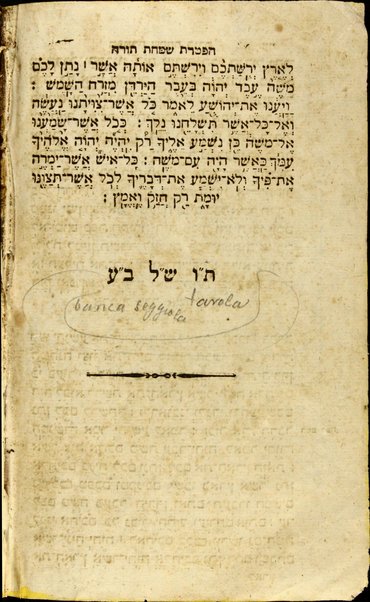 הפטרת שמחת תורה
לְאֶרֶץ יְרֻשַּׁתְכֶם וִירִשְׁתֶּם אוֹתָהּ אֲשֶׁר ׀ נָתַן לָכֶם
מֹשֶׁה עֶבֶד יְהוָֹה בְּעֵבֶר הַיַּרְדֵּן מִזְרַח הַשָּׁמֶשׁ :
וַיַּעֲנוּ אֶת־יְהוֹשֻׁעַ לֵאמֹר כֹּל אֲשֶׁר־צִוִּיתָנוּ נַעֲשֶׂה
וְאֶל־כָּל־אֲשֶׁר תִּשְׁלָחֵנוּ נֵלֵךְ : כְּכֹל אֲשֶׁר־שָׁמַעְנוּ
אֶל־מֹשֶׁה כֵּן נִשְׁמַע אֵלֶיךָ רַק יִהְיֶה יְהוָֹה אֱלֹהֶיךָ
עִמָּךְ כַּאֲשֶׁר הָיָה עִם־מֹשֶׁה : כָּל־אִישׁ אֲשֶׁר־יַמְרֶה
אֶת־פִּיךָ וְלֹא־יִשְׁמַע אֶת־דְּבָרֶיךָ לְכֹל אֲשֶׁר־תְּצַוֶּנּוּ
יוּמָת רַק חֲזַק וֶאֱמָץ :
ת״ו ש״ל ב״ע
banca seggiola tavola